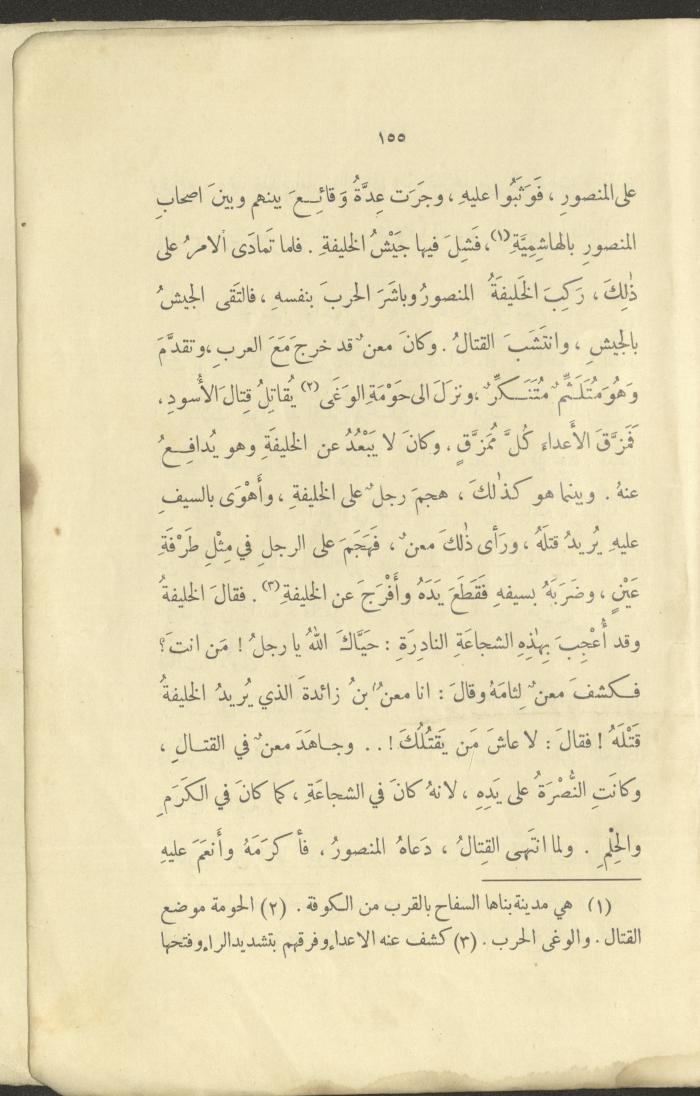 ١٥٥
على المنصورِ ، فَوَثَبُوا عليهِ ، وجَرَت عِدَّةُ وَقائِـعَ بينهم وبينَ اصحابِ
المنصورِ بالهاشِمِيَّةِ (١)، فَشِلَ فيها جَيْشُ الخليفةِ . فلما تَمادَى ألامرُ على
ذٰلِكَ ، رَكِبَ الخَليفَةُ المنصورُ وباشَرَ الحربَ بنفسهِ ، فالتَقى الجيشُ
بالجيشِ ، وانتَشَبَ القتالُ . وكانَ معنٌ قد خرجَ مَعَ العربِ ، وتقدَّمَ
وَهُوَ مُتَلَثِّمٌ مُتَنَـكِّرٌ ، ونزلَ الى حَوْمَةِ الوَغَى (٢) يُقاتِلُ قِتالَ الأُسودِ ،
فَمَزَّقَ الأَعداءَ كُلَّ مُمَزَّقٍ ، وكانَ لا يَبْعُدُ عن الخليفَةِ وهو يُدافِـعُ
عنهُ . وبينما هو كـذٰلكَ ، هجمَ رجلٌ على الخليفةِ ، وأَهْوَى بالسيفِ
عليهِ يُريدُ قتلَهُ ، ورَأى ذٰلكَ معنٌ ، فَهَجَمَ على الرجلِ في مِثْلِ طَرْفَةِ
عَيْنٍ ، وضَرَبَهُ بسيفهِ فَقَطَعَ يَدَهُ وأَفْرَجَ عن الخليفةِ (٣) . فقالَ الخليفةُ
وقد أُعْجِبَ بِهٰذِهِ الشجاعَةِ النادِرَةِ : حَيَّاكَ اللهُ يا رجلُ ! مَن انتَ ؟
فـكشفَ معنٌ لِثامَهُ وقالَ : انا معنُ بنُ زائدةَ الذي يُريدُ الخليفةُ
قَتْلَهُ ! فقالَ : لا عاشَ مَن يَقتُلُكَ ! . . وجـاهَدَ معنٌ في القتـالِ ،
وكانَتِ النُّصْرَةُ على يَدِهِ ، لانهُ كانَ في الشجاعَةِ ، كما كانَ في الكَرَمِ
والحِلْمِ . ولما انتَهى القِتالُ ، دَعاهُ المنصورُ ، فأكرَمَهُ وأَنعَمَ عليهِ
(١) هي مدينة بناها السفاح بالقرب من الـكوفة . (٢) الحومة موضع
القتال . والوغى الحرب . (٣) كشف عنه الاعداء وفرقهم بتشديد الراء وفتحها